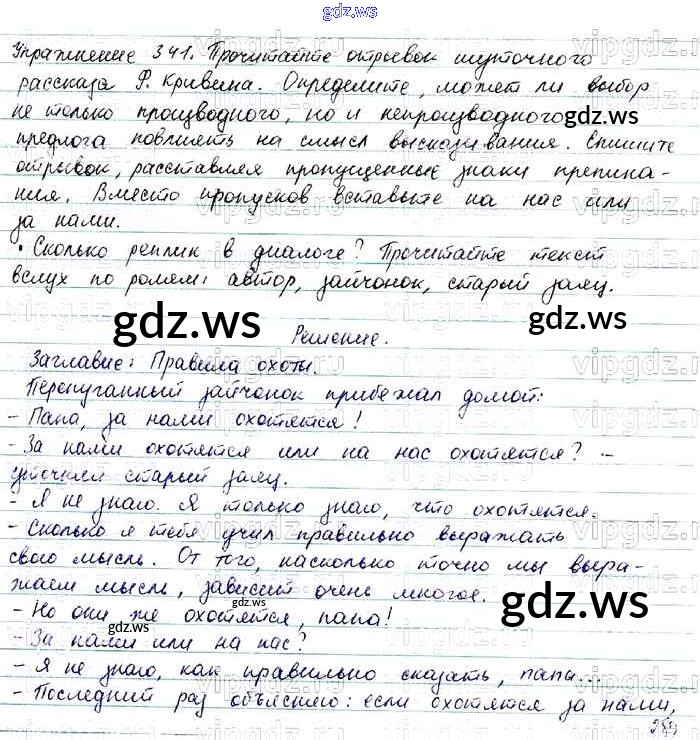 gdz.ws
Упражнение 341. Прочитайте отрывок шуточного
рассказа Ф. Кривина. Определите, может ли выбор
не только производного, но и непроизводного
gdz.ws
предлога повлиять на смысл высказывания. Спишите
отрывок, расставляя пропущенные знаки препина-
ния. Вместо пропусков вставьте на нас или
за нами.
• Сколько реплик в диалоге? Прочитайте текст
вслух по ролям: автор, зайчонок, старый заяц.
gdz.ws gdz.ws
Решение.
Заглавие: Правила охоты.
Перепуганный зайчонок прибежал домой:
– Папа, за нами охотятся!
– За нами охотятся или на нас охотятся? –
уточнил старый заяц.
– Я не знаю. Я только знаю, что охотятся.
– Сколько я тебя учил правильно выражать
свою мысль. От того, насколько точно мы выра-
жаем мысль, зависит очень многое.
gdz.ws gdz.ws
– Но они же охотятся, папа!
gdz.ws
– За нами или на нас?
– Я не знаю, как правильно сказать, папа...
– Последний раз объясняю: если охотятся за нами,